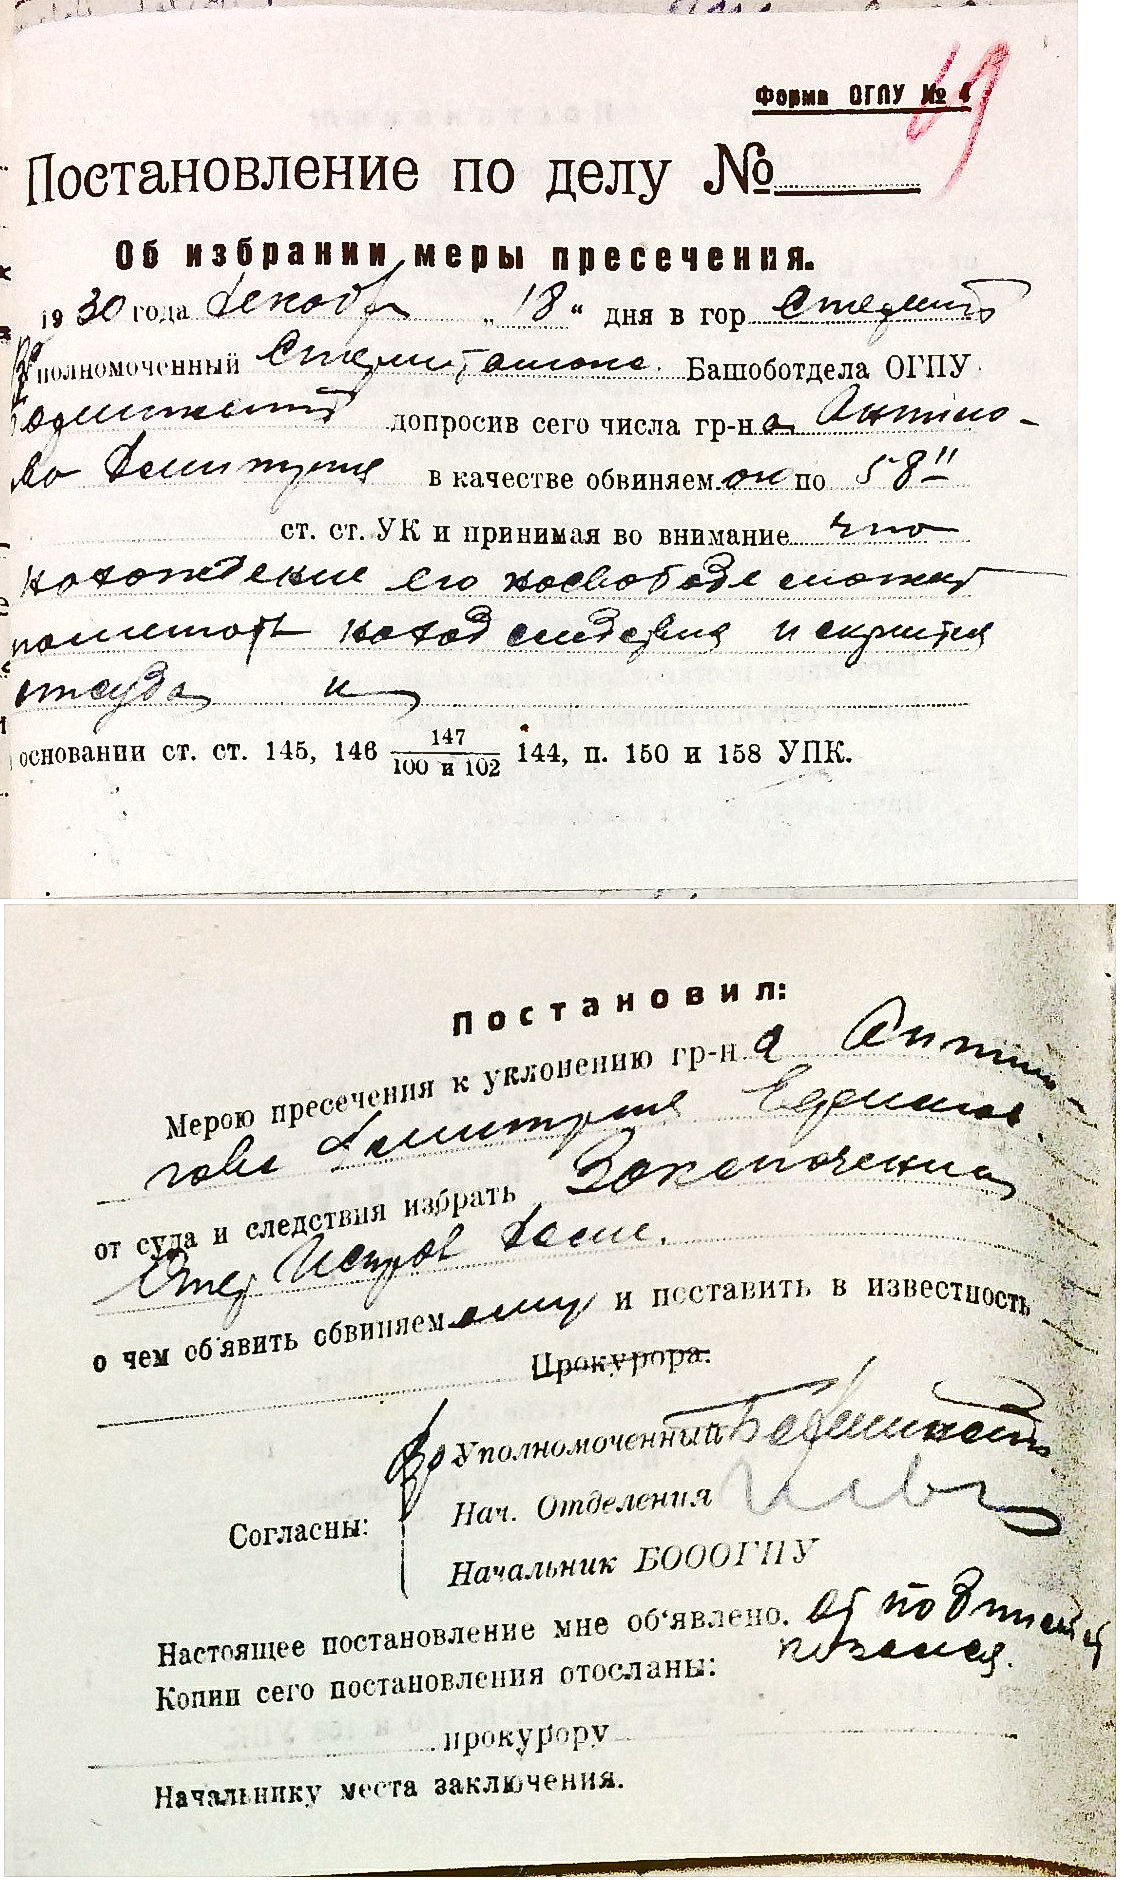 69
Форма ОГПУ № 4
Постановление по делу №
Об избрании меры пресечения.
1930 года декабр „18“ дня в гор
Уполномоченный Башоботдела ОГПУ
допросив сего числа гр-на Антипо-
ва Дмитрия в качестве обвиняемом по 58"
ст. ст. УК и принимая во внимание что
нахождение его насвободе может
находследствия и скрытся
отсуда и
основании ст. ст. 145, 146 147/100 и 102 144, п. 150 и 158 УПК.
Постановил:
Мерою пресечения к уклонению гр-на
Дмитрия
от суда и следствия избрать Заключение
Стер Исправ Доме.
о чем об'явить обвиняемому и поставить в известность
Прокурора.
Уполномоченный
Нач. Отделения
Согласны:
Начальник БОООГПУ
Настоящее постановление мне об'явлено. от подписи
Копии сего постановления отосланы:
прокурору
Начальнику места заключения.